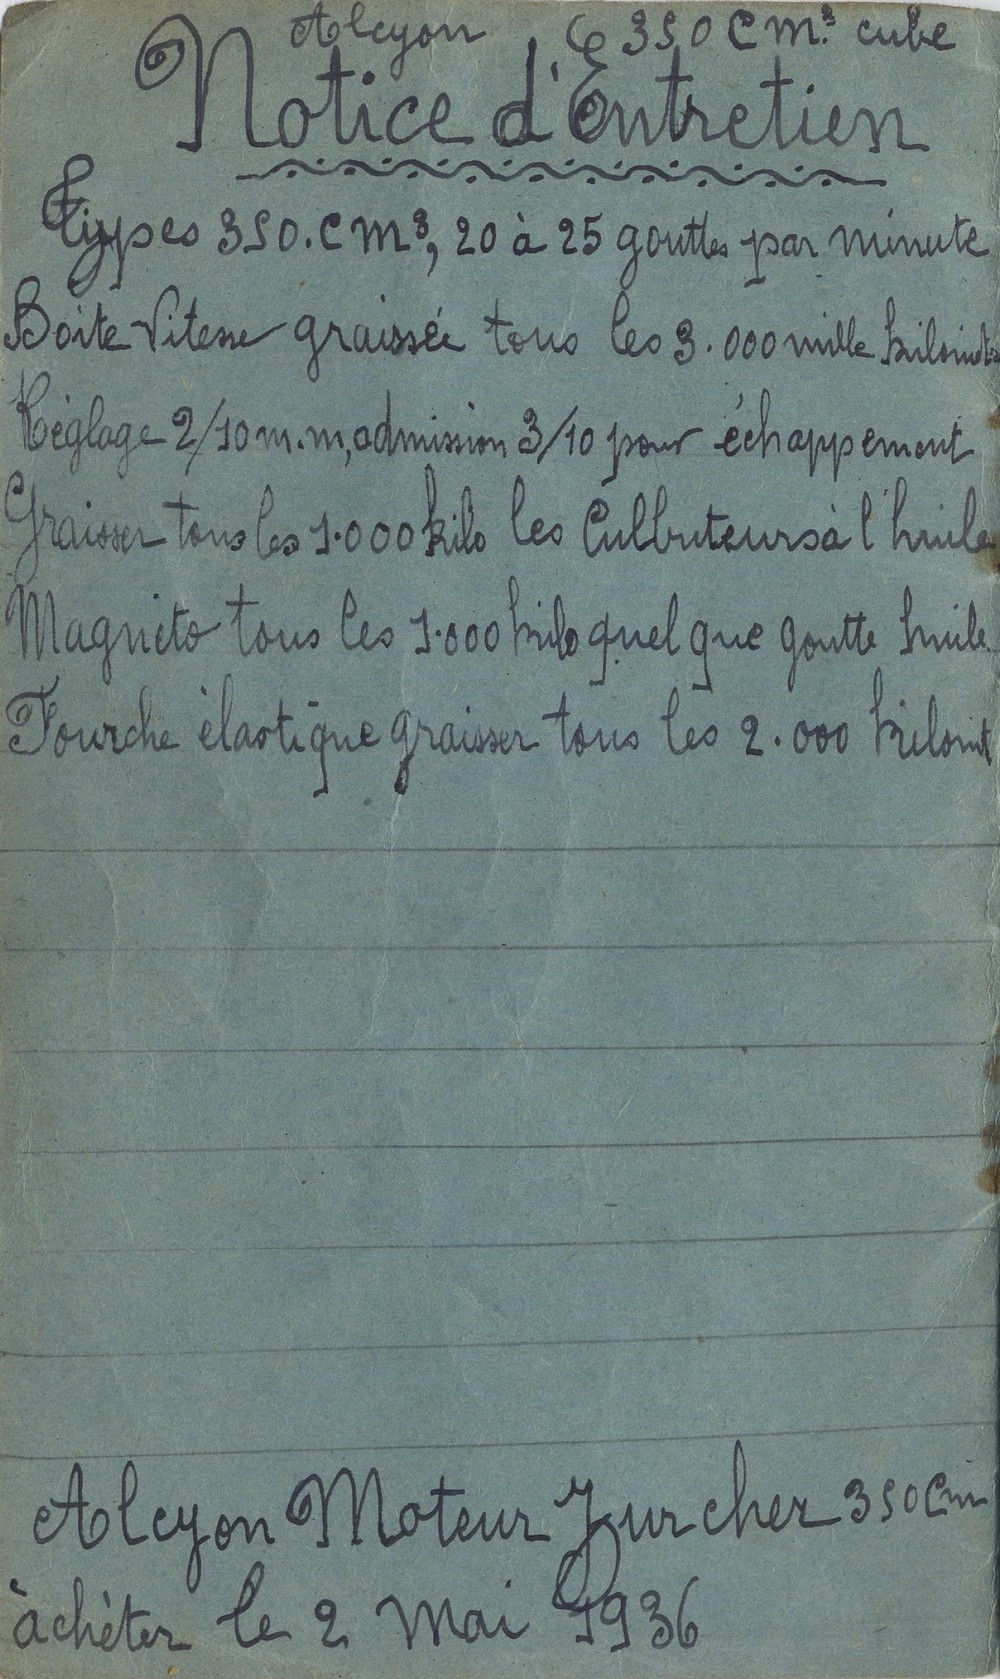 Alcyon 350 Cm³ cube
Notice d'Entretien
Types 350.cm³, 20 à 25 gouttes par minute
Boite Vitesse graissée tous les 3.000 mille kilomèt
Réglage 2/10 m.m, admission 3/10 pour échappement
Graisser tous les 1.000 kilo les Culbuteurs à l'huile
Magnéto tous les 1.000 kilo quelque goutte huile
Fourche élastique graisser tous les 2.000 kilomt
Alcyon Moteur Zurcher 350 Cm
àchèter le 2 Mai 1936